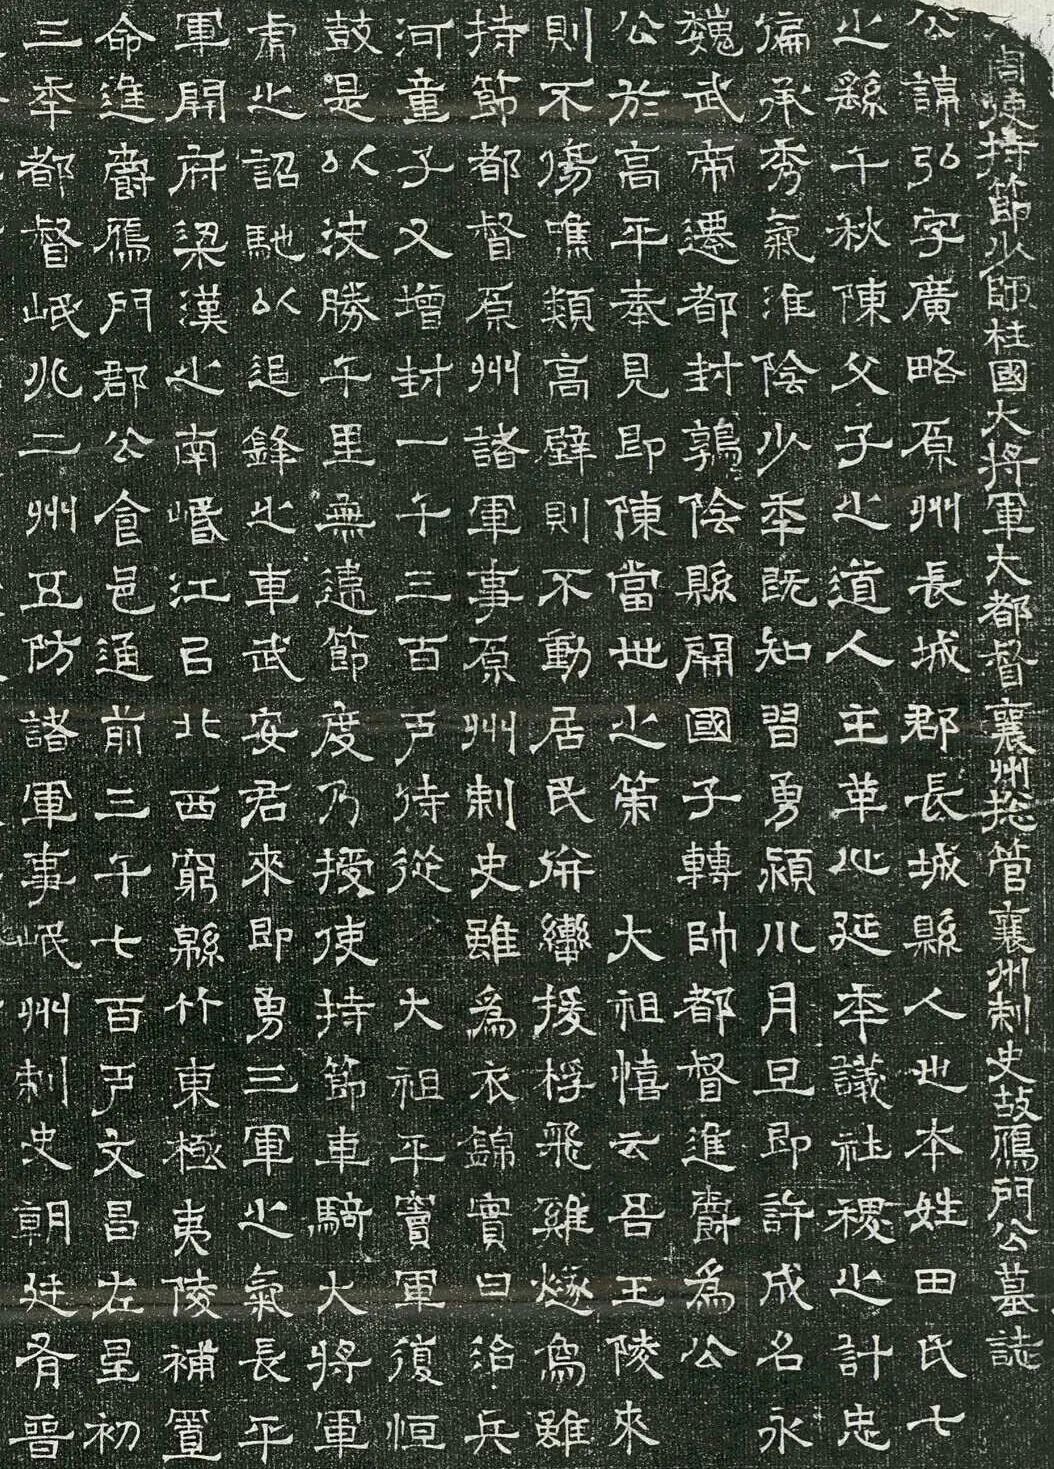 周使持節少師柱國大將軍大都督襄州揔管襄州刺史故鴈門公墓誌
公諱弘字廣略原州長城郡長城縣人也本姓田氏七
之千秋陳父子之道人主革心延年議社稷之計忠
偏承秀氣淮陰少年既知習勇潁川月旦即許成名永
魏武帝遷都封鶉陰縣開國子轉帥都督進爵為公
公於高平奉見即陳當世之策 大祖憘云吾王陵來
則不傷噍類高壁則不動居民併轡援桴飛雞燧為雖
持節都督原州諸軍事原州刺史雖為衣錦實曰治兵
河童子又增封一千三百戶侍從 大祖平竇軍復恒
鼓是以決勝千里無違節度乃授使持節車騎大將軍
肅之詔馳以追鋒之車武安君來即勇三軍之氣長平
軍開府梁漢之南岷江已北西窮綿竹東極夷陵補置
命進爵鴈門郡公食邑通前三千七百戶文昌左星初
三年都督岷兆二州五防諸軍事岷州刺史朝廷有晉